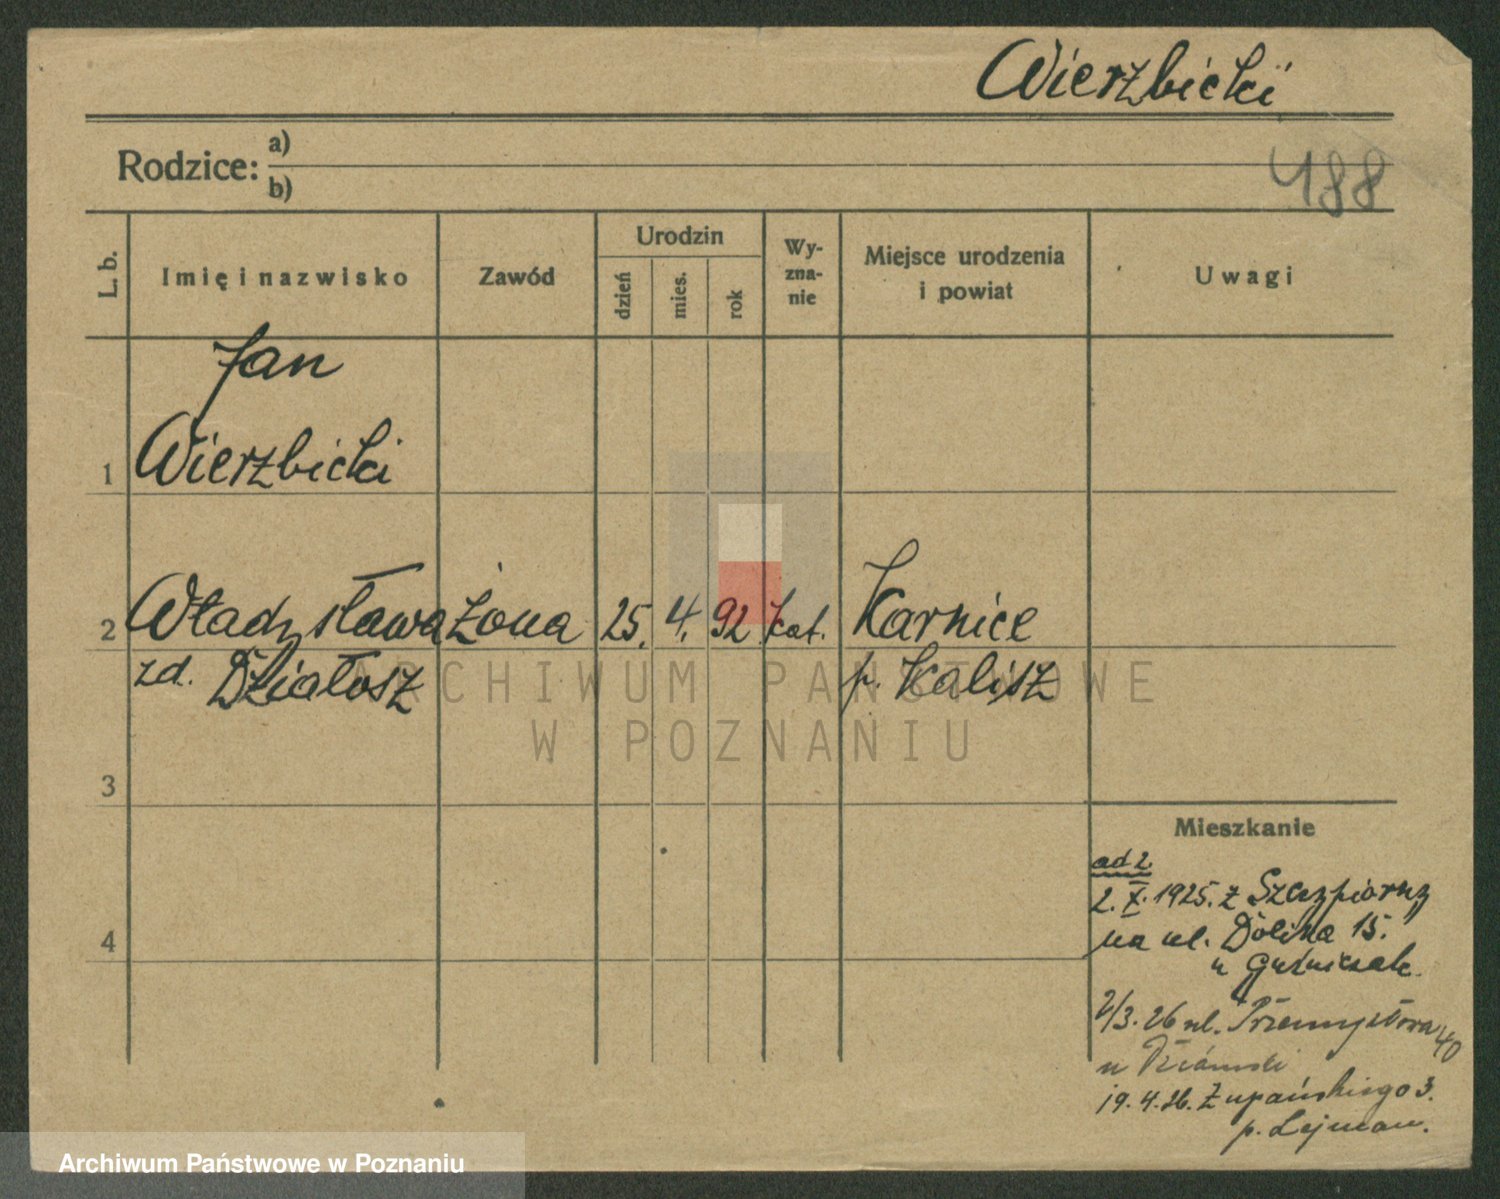 Wierzbicki
Rodzice: a)
b)
488
L. b.
Imię i nazwisko
Zawód
Urodzin
dzień
mies.
rok
Wy-
zna-
nie
Miejsce urodzenia
i powiat
Uwagi
Jan
1 Wierzbicki
2 Władysława żona 25. 4. 92 kat. Karnice
zd. Działosz p. Kalisz
ARCHIWUM PAŃSTWOWE
W POZNANIU
3
Mieszkanie
4
ad 2.
2. X. 1925. z Szczypiorny
na ul. Dolina 15.
u
2/3. 26 ul. Przemysłowa 40
u
19. 4. 26. Żupańskiego 3.
p. Lejman.
Archiwum Państwowe w Poznaniu